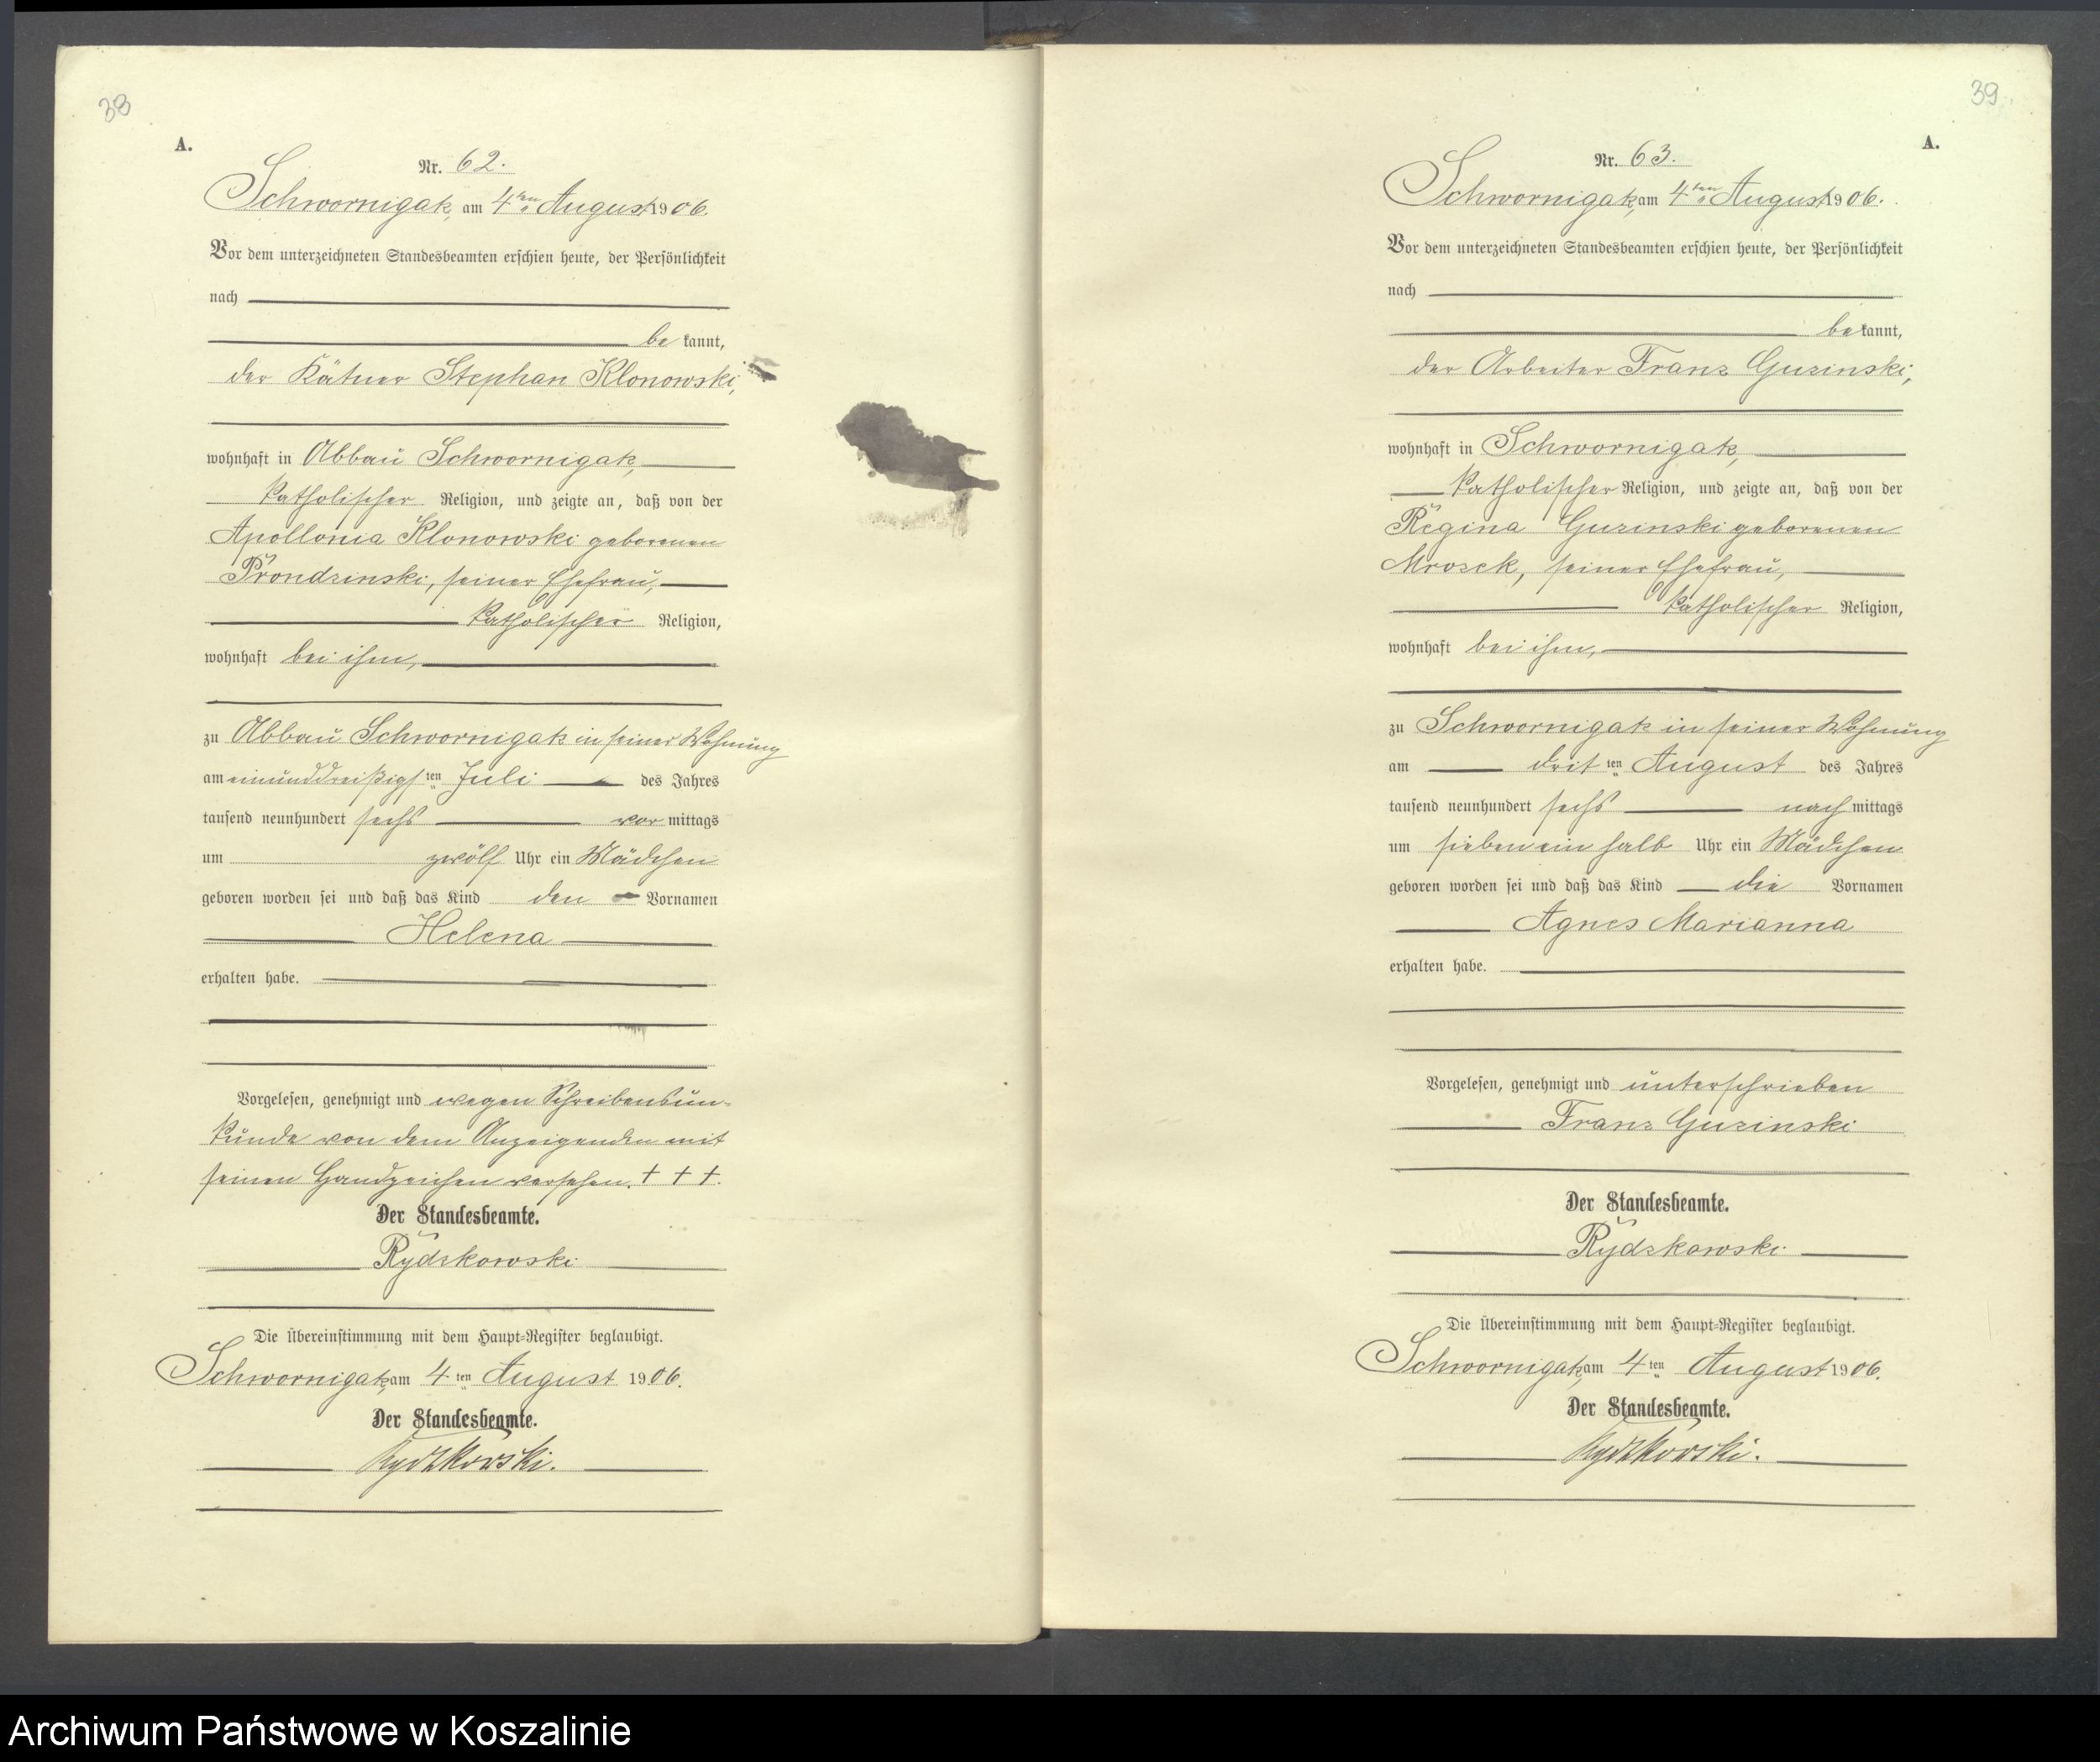 38
A.
Nr. 62.
Schwornigatz, am 4ten August 1906.
Vor dem unterzeichneten Standesbeamten erschien heute, der Persönlichkeit
nach
be kannt,
der Kätner Stephan Klonowski,
wohnhaft in Abbau Schwornigatz,
katholischer Religion, und zeigte an, daß von der
Apollonia Klonowski geborenen
Prondzinski, seiner Ehefrau,
katholischer Religion,
wohnhaft bei ihm,
zu Abbau Schwornigatz in seiner Wohnung
am einunddreißigsten Juli des Jahres
tausend neunhundert sechs vor mittags
um zwölf Uhr ein Mädchen
geboren worden sei und daß das Kind den Vornamen
Helena
erhalten habe.
Vorgelesen, genehmigt und wegen Schreibensun-
kunde von dem Anzeigenden mit
seinen Handzeichen versehen. + + +.
Der Standesbeamte.
Rydzkowski
Die Übereinstimmung mit dem Haupt-Register beglaubigt.
Schwornigatz, am 4ten August 1906.
Der Standesbeamte.
Rydzkowski.
39
A.
Nr. 63.
Schwornigatz, am 4ten August 1906.
Vor dem unterzeichneten Standesbeamten erschien heute, der Persönlichkeit
nach
be kannt,
der Arbeiter Franz Guzinski,
wohnhaft in Schwornigatz,
katholischer Religion, und zeigte an, daß von der
Regina Guzinski geborenen
Mrozek, seiner Ehefrau,
katholischer Religion,
wohnhaft bei ihm,
zu Schwornigatz in seiner Wohnung
am dritten August des Jahres
tausend neunhundert sechs nach mittags
um sieben ein halb Uhr ein Mädchen
geboren worden sei und daß das Kind die Vornamen
Agnes Marianna
erhalten habe.
Vorgelesen, genehmigt und unterschrieben
Franz Guzinski
Der Standesbeamte.
Rydzkowski
Die Übereinstimmung mit dem Haupt-Register beglaubigt.
Schwornigatz, am 4ten August 1906.
Der Standesbeamte.
Rydzkowski.
Archiwum Państwowe w Koszalinie